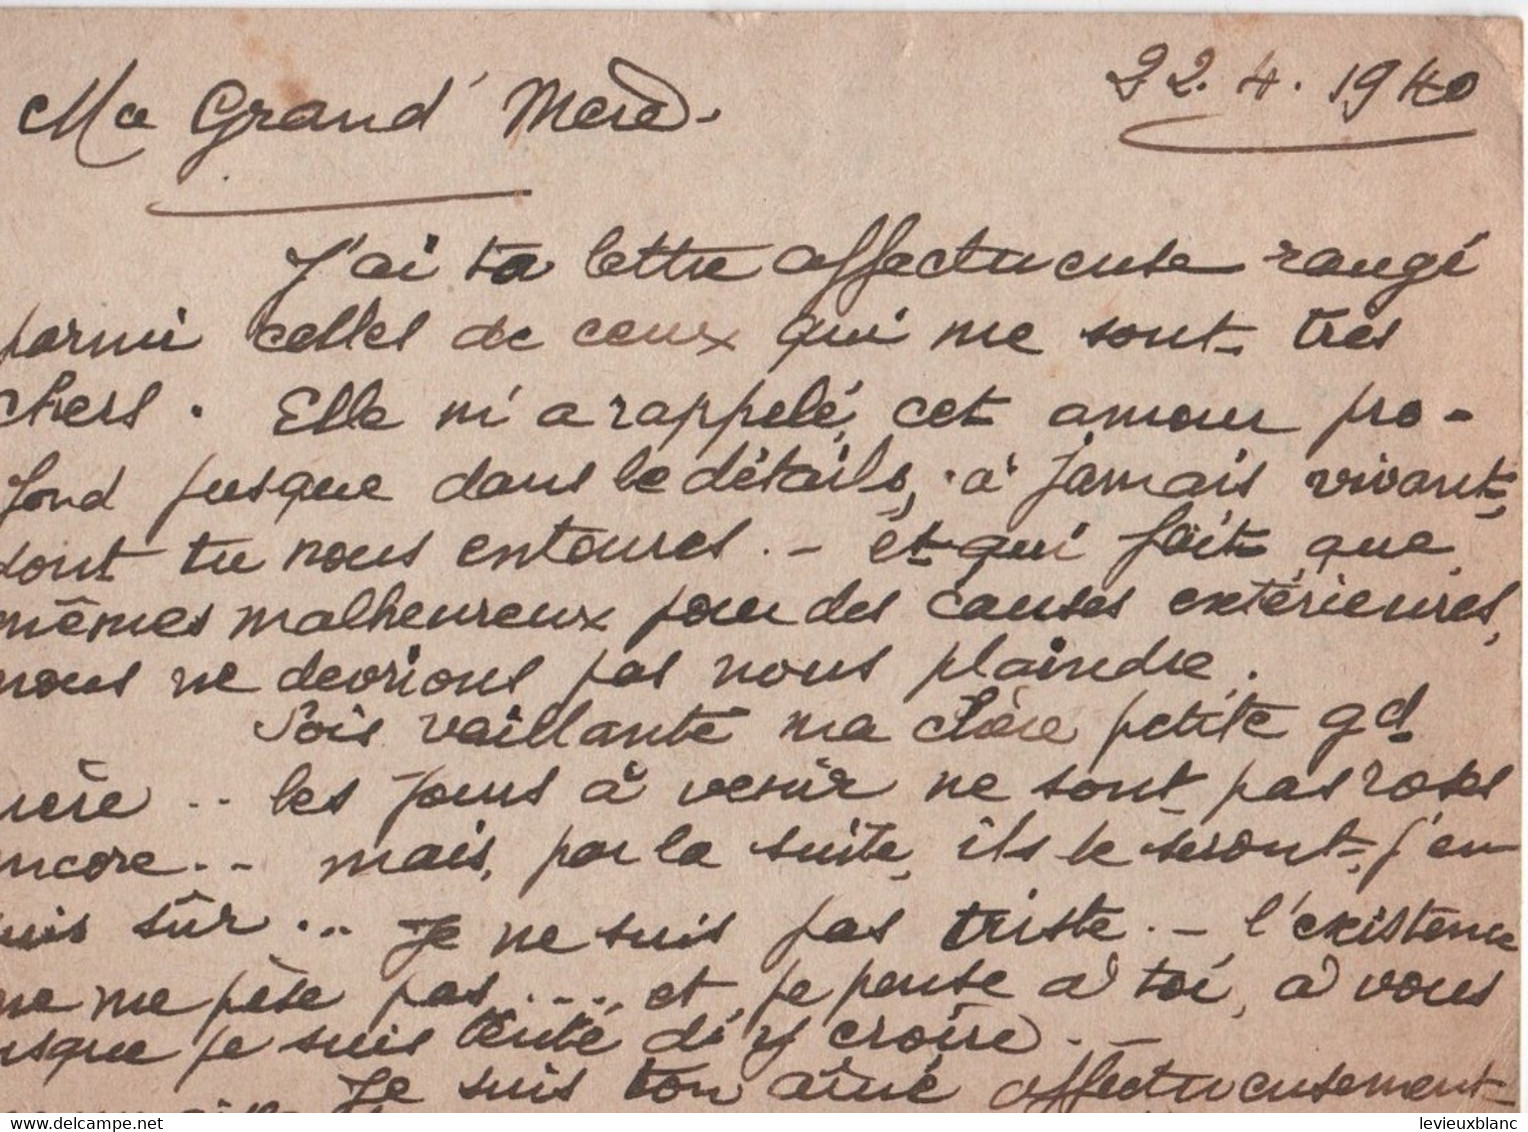 22.4.1940
Ma Grand' Mère.
J'ai ta lettre affectueuse rangé
parmi celles de ceux qui me sont très
chers. Elle m'a rappelé, cet amour pro-
fond jusque dans le détails, à jamais vivant,
dont tu nous entoures. - et qui fait que,
mêmes malheureux pour des causes extérieures,
nous ne devrions pas nous plaindre.
Sois vaillante ma chère petite gd
mère .. les jours à venir ne sont pas roses
encore .. mais, par la suite, ils le seront, j'en
suis sûr ... Je ne suis pas triste. - l'existence
ne me pèse pas .... et je pense à toi, à vous
je suis tenté d'y croire. -
Je suis ton aîné affectueusement
levieuxblanc